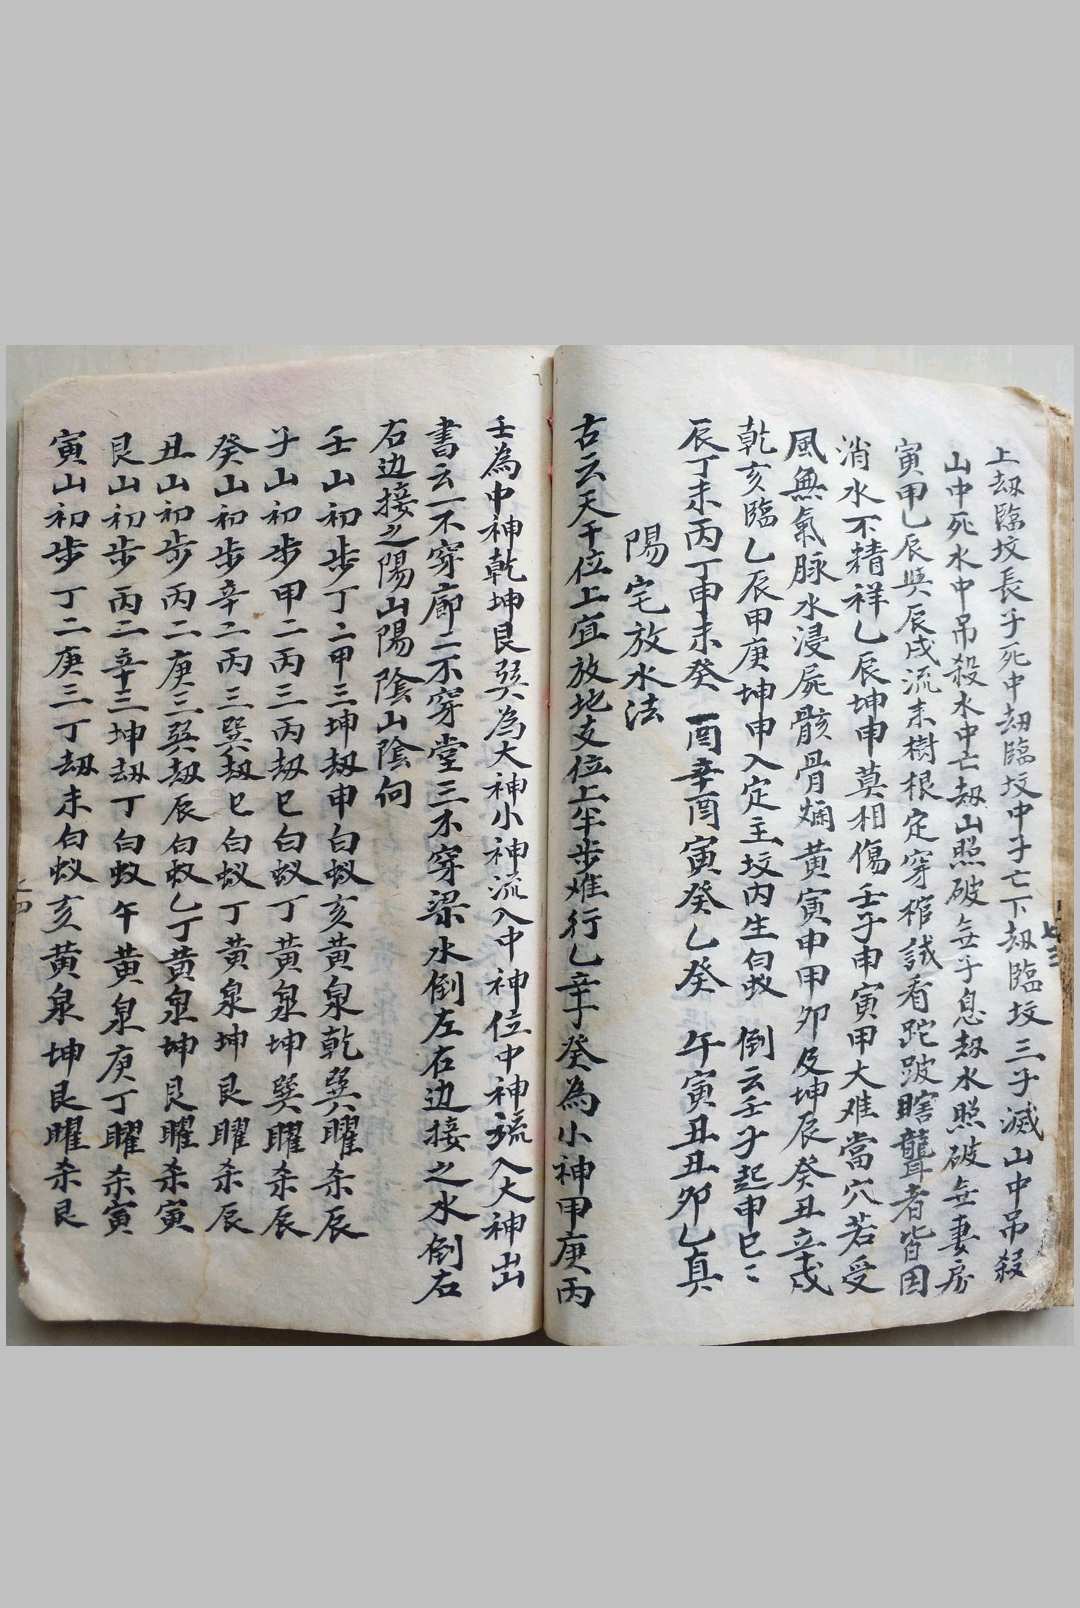 上刼臨坟長子死中刼臨坟中子亡下刼臨坟三子滅山中吊殺
山中死水中吊殺水中亡刼山照破無子息刼水照破無妻房
寅甲乙辰與辰戌流来樹根定穿棺試看跎跛瞎聾者皆因
消水不精祥乙辰坤申莫相傷壬子申寅甲大难當穴若受
風無氣脉水浸屍骸骨烟黄寅申甲卯及坤辰癸丑立戌
乾亥臨乙辰甲庚坤申入定主坟内生白蚁 倒云壬子起申巳
辰丁未丙丁申未癸 酉辛酉寅癸乙癸 午寅丑丑卯乙真
陽宅放水法
古云天干位上宜放地支位上半步难行乙辛丁癸為小神甲庚丙
壬為中神乾坤艮巽為大神小神流入中神位中神流入大神出
書云一不穿廊二不穿堂三不穿梁水倒左右边接之水倒右
右边接之陽山陽陰山陰向
壬山初步丁二甲三坤刼申白蚁亥黄泉乾巽曜杀辰
子山初步甲二丙三丙刼巳白蚁丁黄泉坤巽曜杀辰
癸山初步辛二丙三巽刼巳白蚁丁黄泉坤艮曜杀辰
丑山初步丙二庚三巽刼辰白蚁乙丁黄泉坤艮曜杀寅
艮山初步丙二辛三坤刼丁白蚁午黄泉庚丁曜杀寅
寅山初步丁二庚三丁刼未白蚁亥黄泉坤艮曜杀艮